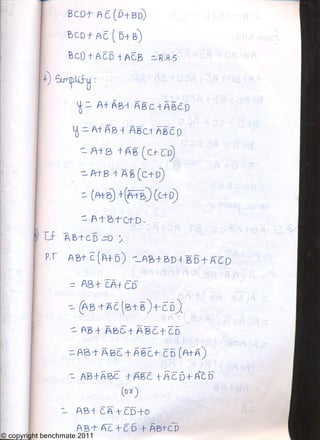 BCD + AC̅ (D̅+BD)
BCD + AC̅ (D̅+B)
BCD + AC̅D̅ + AC̅B = R.H.S
4) Simplify :
y = A + A̅B + A̅B̅C + A̅B̅C̅D
y = A + A̅B + A̅B̅C + A̅B̅C̅D
= A+B + A̅B̅ (C+C̅D)
= A+B + A̅B̅ (C+D)
= (A+B) + (A̅+̅B̅) (C+D)
= A+B+C+D.
If A̅B+CD̅ =0 ;
P.T AB+ C̅ (A̅+D̅) = AB+BD+B̅D̅+A̅C̅D
= AB + C̅A̅ + C̅D̅
= (AB + A̅C̅ (B+B̅)+C̅D̅)
= AB + A̅BC̅ + A̅B̅C̅ + C̅D̅
= AB + A̅BC̅ + A̅B̅C̅ + C̅D̅ (A+A̅)
= AB+A̅BC̅ + A̅B̅C̅ + AC̅D̅ + A̅C̅D̅
(or)
= AB + C̅A̅ + C̅D̅ + 0
AB + A̅C̅ + C̅D̅ + A̅B+CD̅
© copyright benchmate 2011